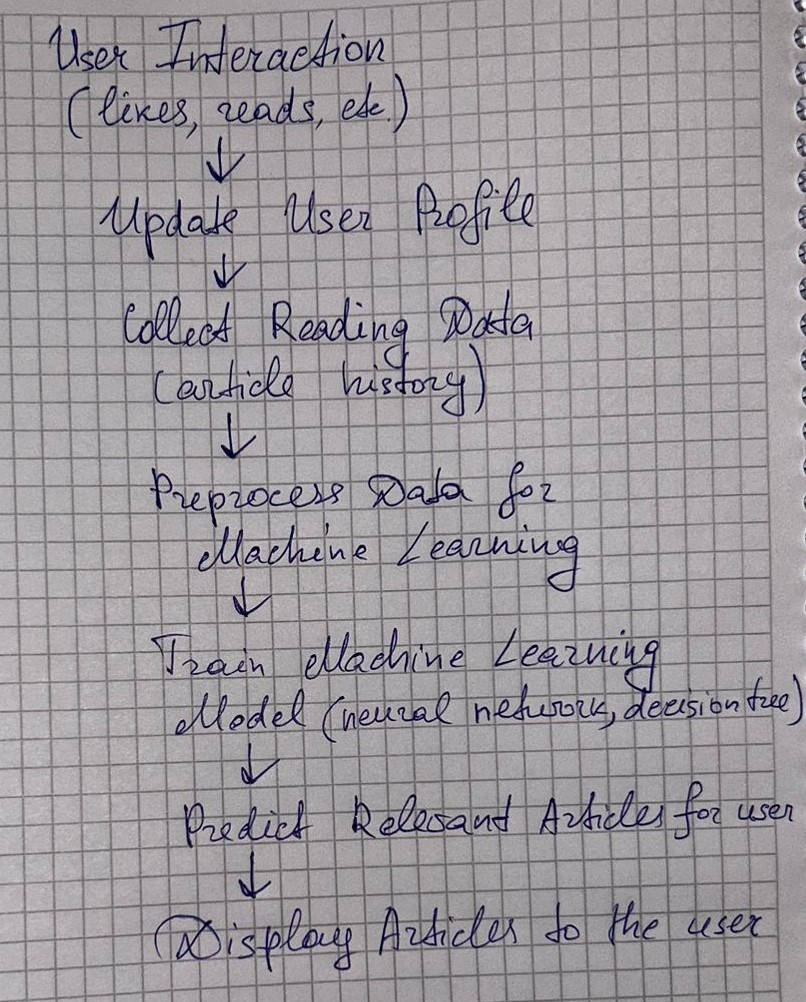 User Interaction
(likes, reads, etc.)
↓
Update User Profile
↓
Collect Reading Data
(article history)
↓
Preprocess Data for
Machine Learning
↓
Train Machine Learning
Model (neural network, decision tree)
↓
Predict Relevant Articles for user
↓
Display Articles to the user